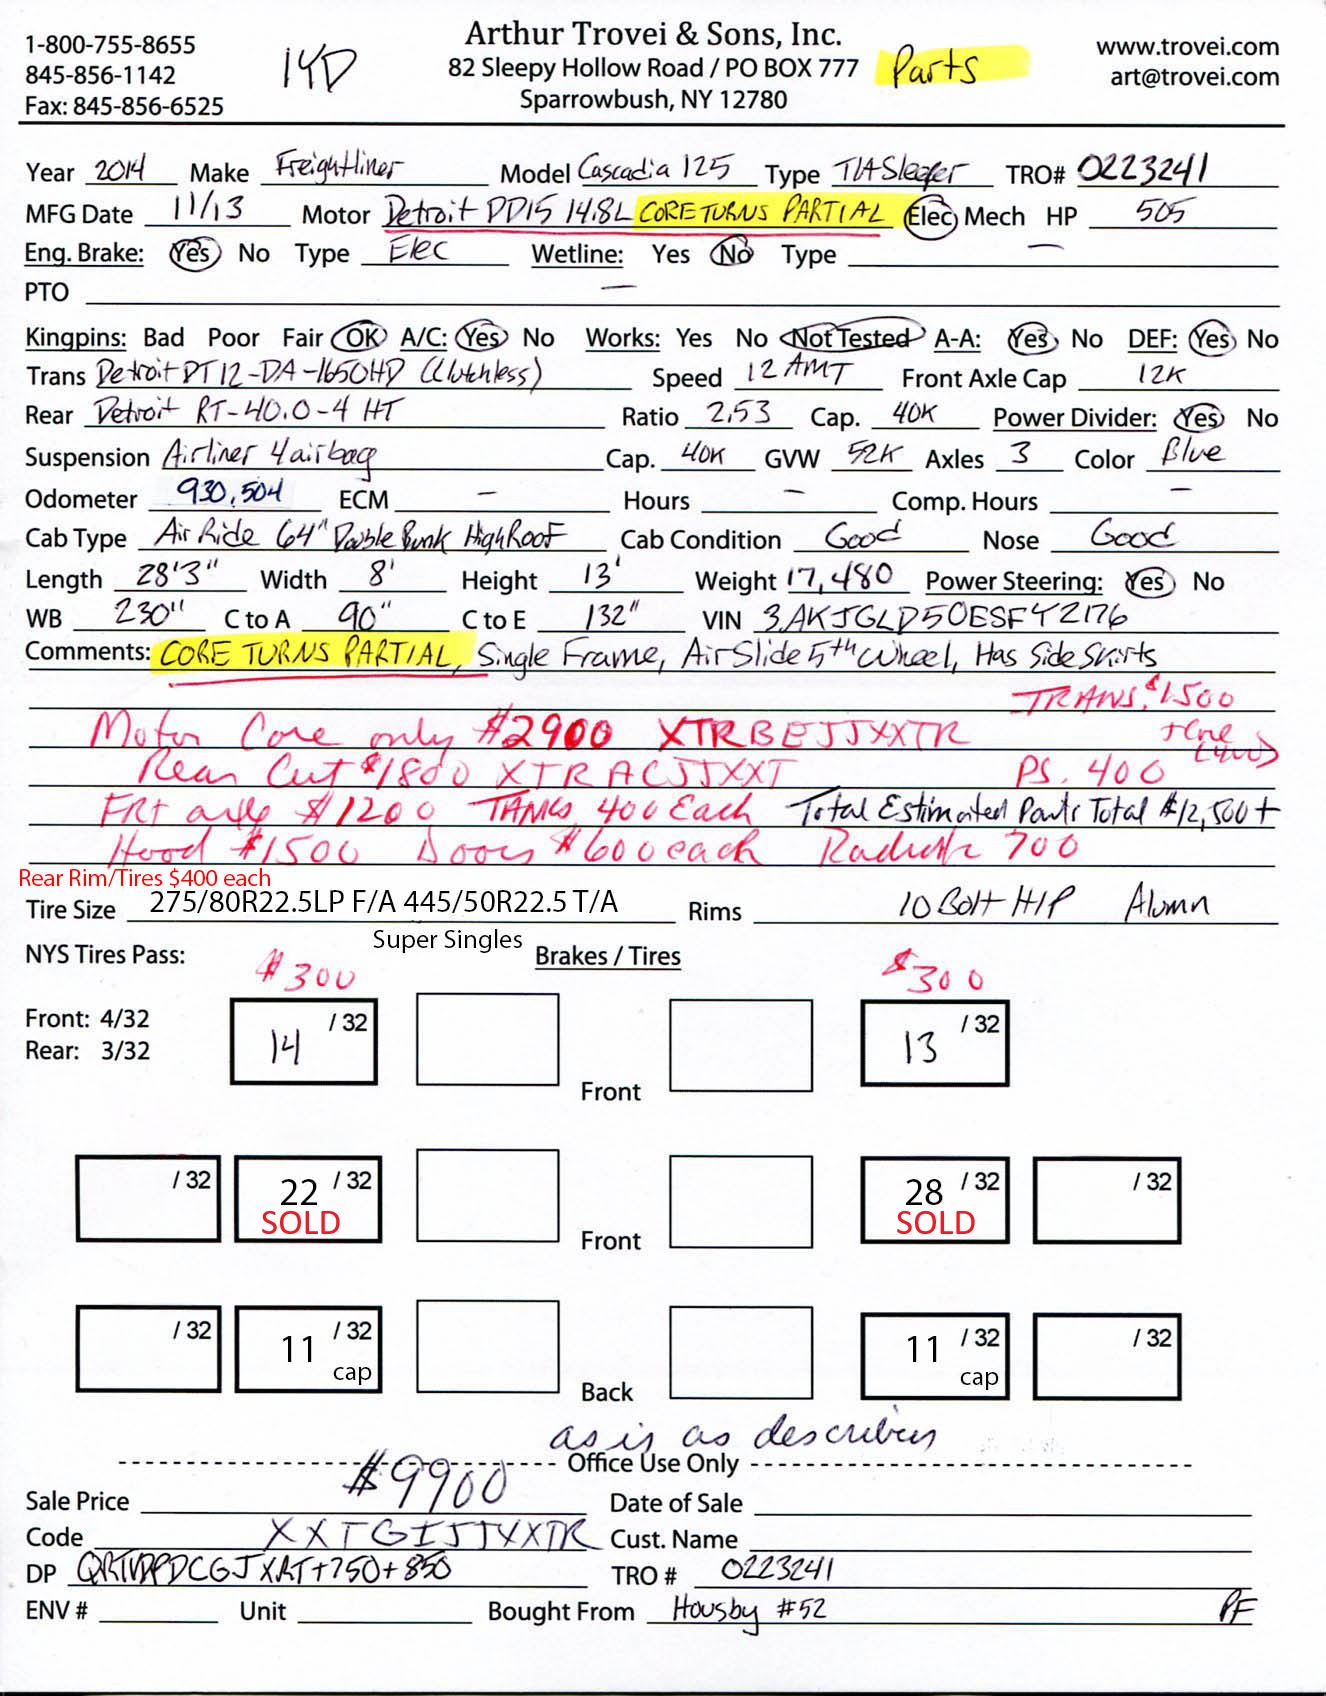 1-800-755-8655
845-856-1142
Fax: 845-856-6525
14D
Arthur Trovei & Sons, Inc.
82 Sleepy Hollow Road / PO BOX 777
Sparrowbush, NY 12780
Parts
www.trovei.com
art@trovei.com
Year 2014 Make Freightliner Model Cascadia 125 Type T/A Sleeper TRO# 0223241
MFG Date 11/13 Motor Detroit DD15 14.8L CORE TURNS PARTIAL Elec Mech HP 505
Eng. Brake: Yes No Type Elec Wetline: Yes No Type —
PTO —
Kingpins: Bad Poor Fair OK A/C: Yes No Works: Yes No Not Tested A-A: Yes No DEF: Yes No
Trans Detroit DT12-DA-1650HD (Clutchless) Speed 12 AMT Front Axle Cap 12K
Rear Detroit RT-40.0-4 HT Ratio 2.53 Cap. 40K Power Divider: Yes No
Suspension Airliner 4 airbag Cap. 40K GVW 52K Axles 3 Color Blue
Odometer 930,504 ECM – Hours – Comp. Hours –
Cab Type Air Ride 64" Double Bunk High Roof Cab Condition Good Nose Good
Length 28'3" Width 8' Height 13' Weight 17,480 Power Steering: Yes No
WB 230" C to A 90" C to E 132" VIN 3AKJGLD50ESFY2176
Comments: CORE TURNS PARTIAL, Single Frame, Air Slide 5th Wheel, Has Side Skirts
TRANS. $1500
Motor Core only $2900 XTRBEJJXXTR + core
Rear Cut $1800 XTRACJJXXT PS. 400
FRT axle $1200 TANKS 400 Each Total Estimated Parts Total $12,500+
Hood $1500 Doors $600 each 700
Rear Rim/Tires $400 each
Tire Size 275/80R22.5LP F/A 445/50R22.5 T/A Rims 10 Bolt H/P Alumn
Super Singles
NYS Tires Pass: Brakes / Tires
$300 $300
Front: 4/32
Rear: 3/32
14 / 32 13 / 32
Front
/ 32 22 / 32 28 / 32 / 32
SOLD SOLD
Front
/ 32 11 / 32 11 / 32 / 32
cap cap
Back
as is as
Office Use Only
Sale Price $9900 Date of Sale
Code XXTGIJJXXTR Cust. Name
DP +750+850 TRO # 0223241
ENV # Unit Bought From Housby #52 PF